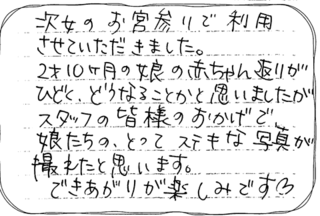 次女のお宮参りで利用
させていただきました。
2才10ヶ月の娘の赤ちゃん返りが
ひどく、どうなることかと思いましたが
スタッフの皆様のおかげで、
娘たちの、とってもステキな写真が
撮れたと思います。
できあがりが楽しみです♡